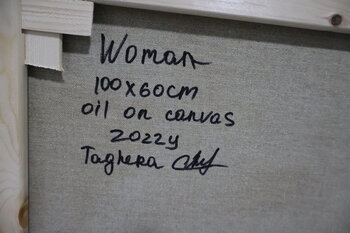 Woman
100x60cm
oil on canvas
2022y
Taghera